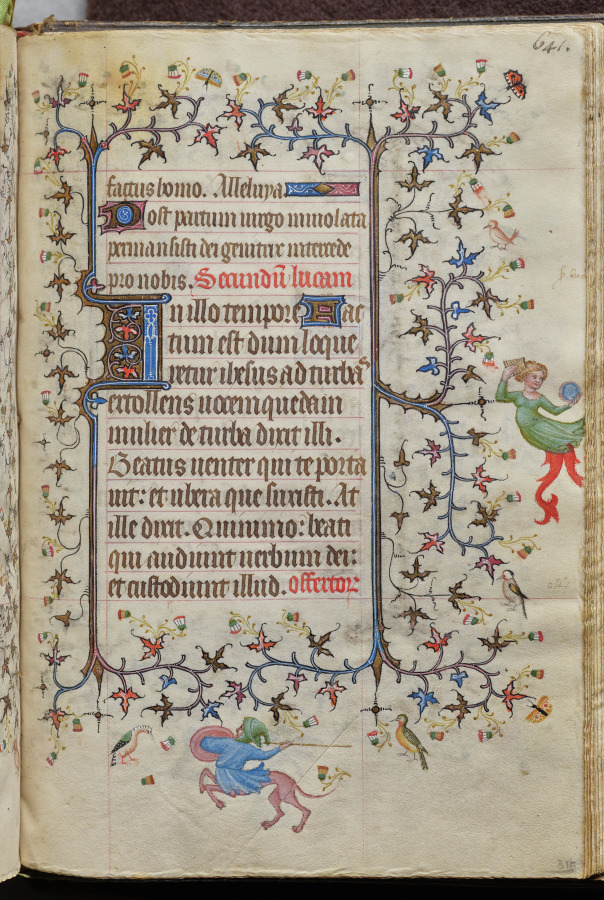 641.
factus homo. Alleluya
Post partum uirgo inuiolata
permansisti dei genitrix intercede
pro nobis. Secundũ lucam
In illo tempore Fac
tum est dum loque
retur ihesus ad turbas
extollens uocem quedam
mulier de turba dixit illi.
Beatus uenter qui te porta
uit: et ubera que suxisti. At
ille dixit. Quinimo: beati
qui audiunt uerbum dei:
et custodiunt illud. offertor